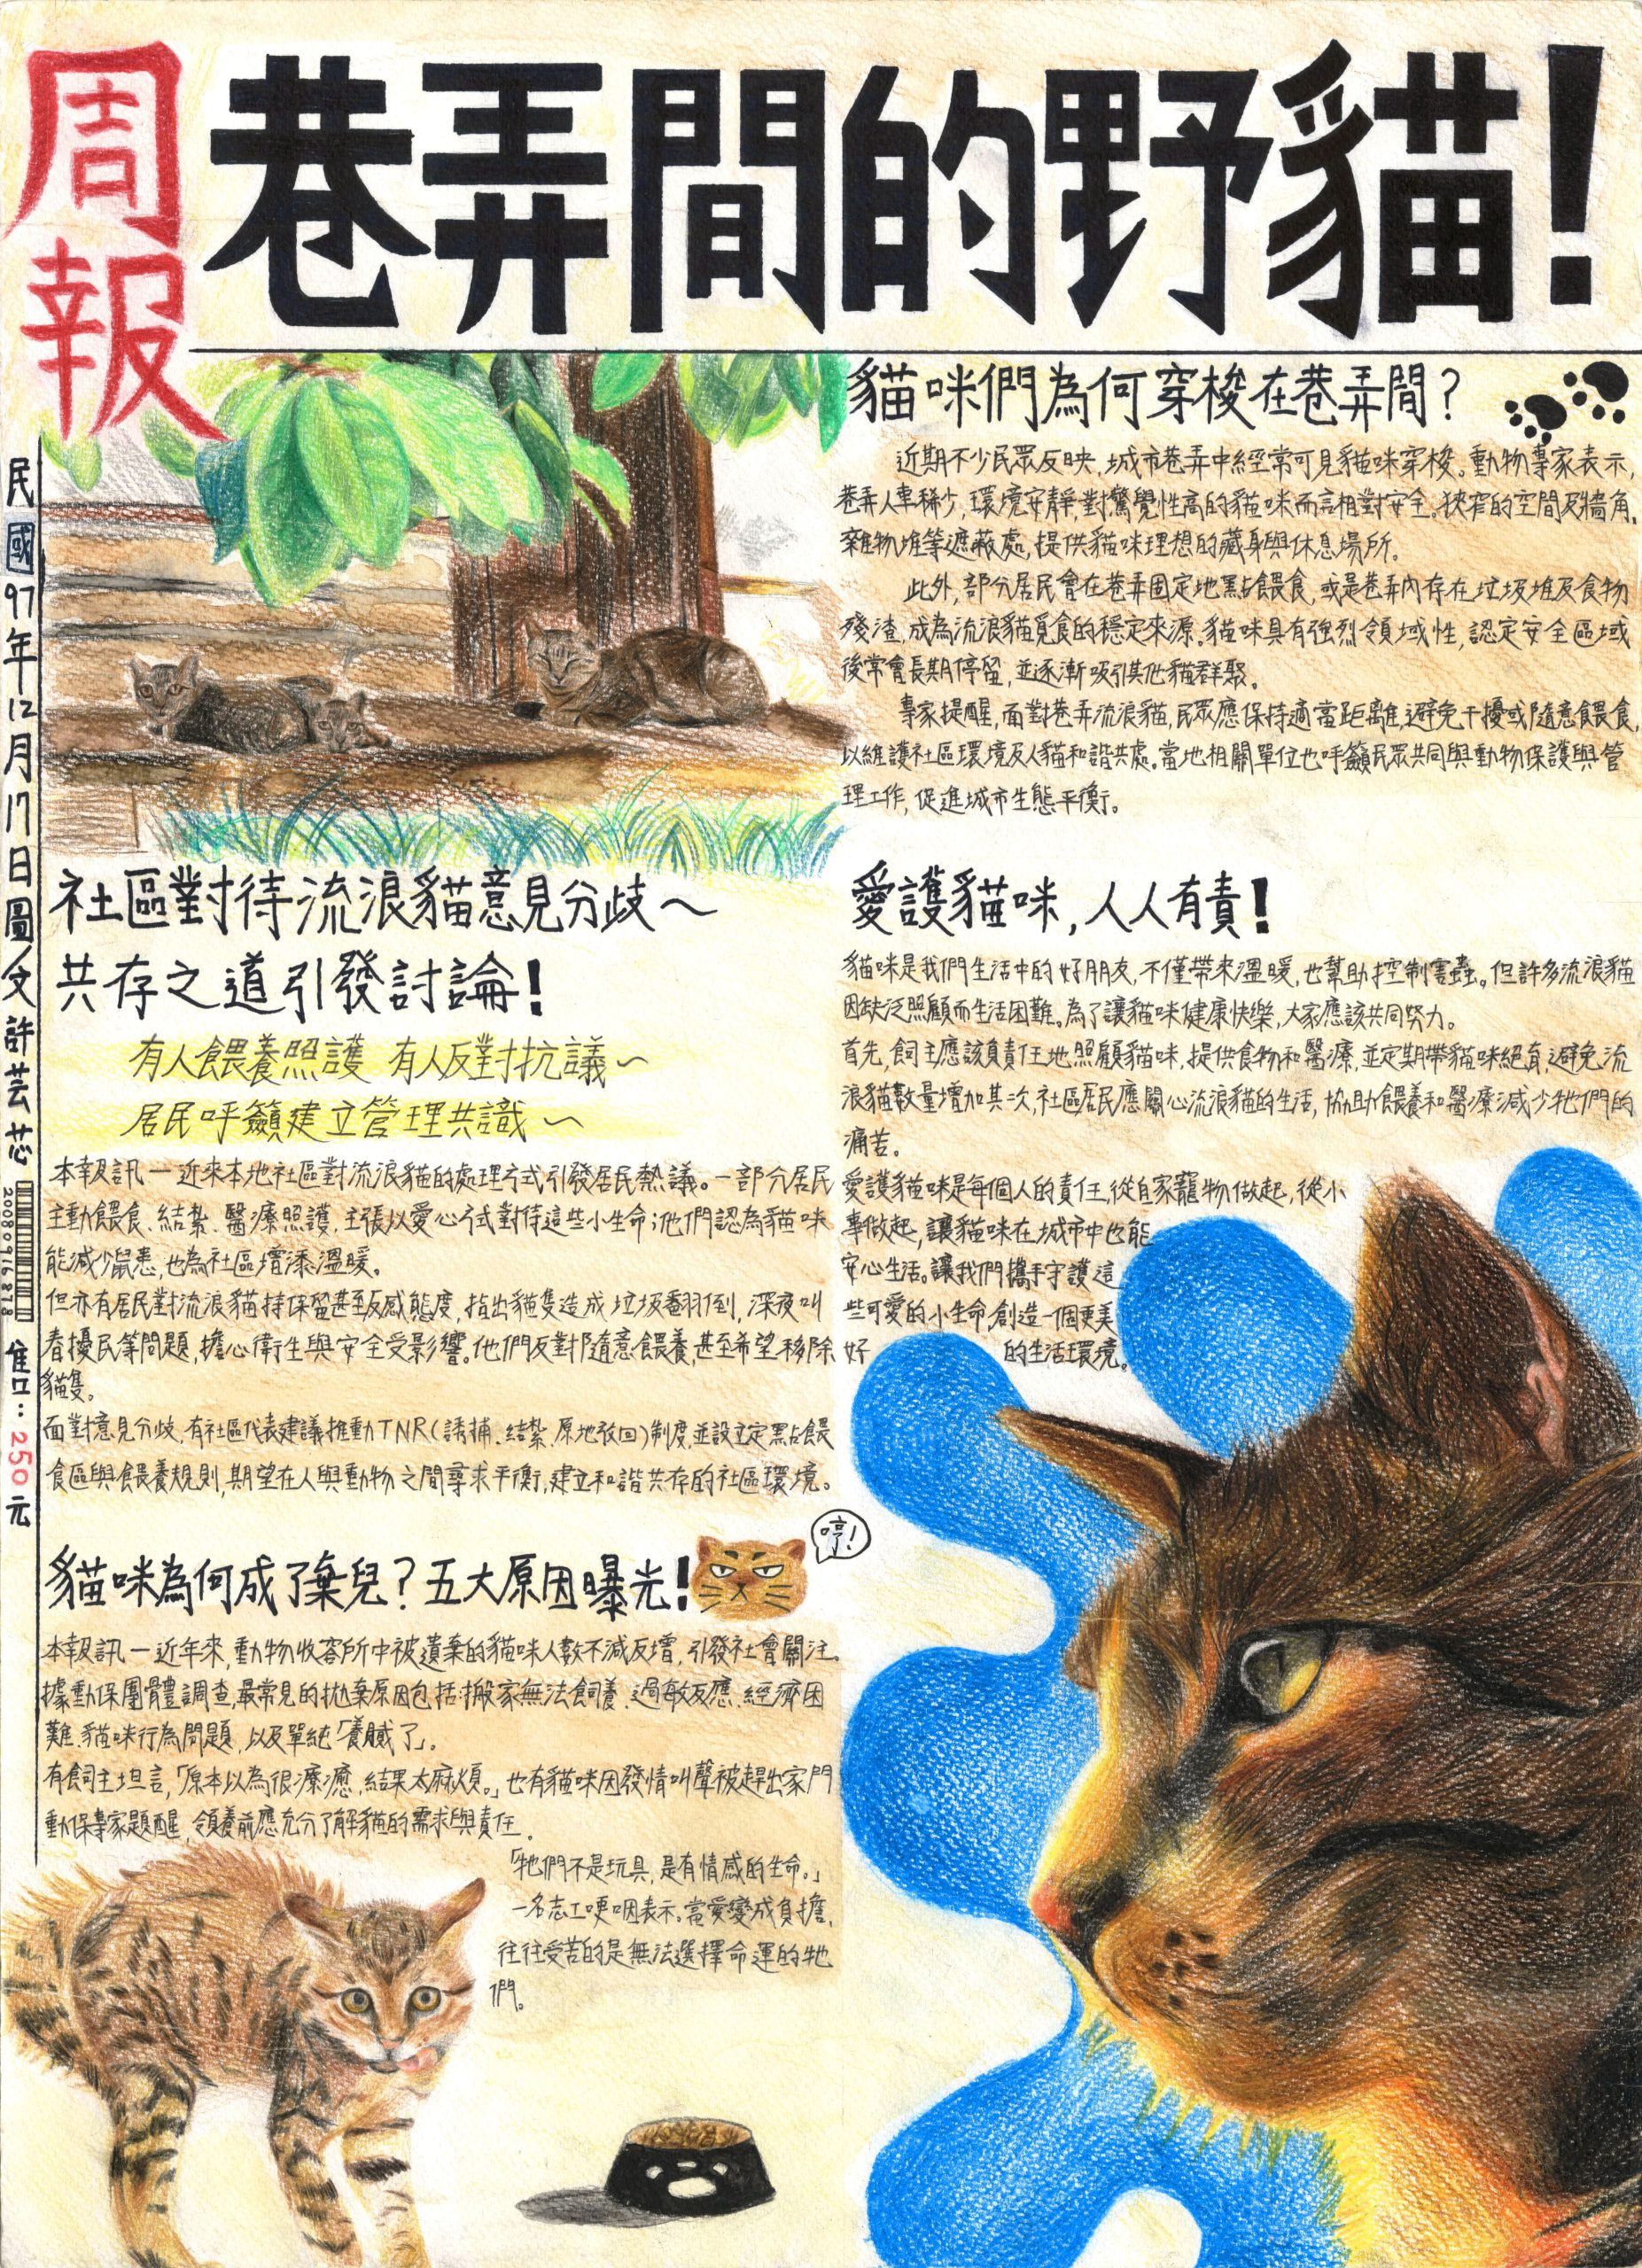 周報
巷弄間的野貓!
民國97年12月17日圖文許芸芯
2008091687
售口:250元
貓咪們為何穿梭在巷弄間?
近期不少民眾反映,城市巷弄中經常可見貓咪穿梭。動物專家表示,
巷弄人車稀少,環境安靜,對驚覺性高的貓咪而言相對安全。狹窄的空間及牆角、
雜物堆等遮蔽處,提供貓咪理想的藏身與休息場所。
此外,部分居民會在巷弄固定地點餵食,或是巷弄內存在垃圾堆及食物
殘渣,成為流浪貓覓食的穩定來源。貓咪具有強烈領域性,認定安全區域
後常會長期停留,並逐漸吸引其他貓群聚。
專家提醒,面對巷弄流浪貓,民眾應保持適當距離,避免干擾或隨意餵食,
以維護社區環境及人貓和諧共處。當地相關單位也呼籲民眾共同與動物保護與管
理工作,促進城市生態平衡。
社區對待流浪貓意見分歧~
共存之道引發討論!
有人餵養照護 有人反對抗議~
居民呼籲建立管理共識~
本報訊一近來本地社區對流浪貓的處理方式引發居民熱議。一部分居民
主動餵食、結紮、醫療照護,主張以愛心方式對待這些小生命;他們認為貓咪
能減少鼠患,也為社區增添溫暖。
但亦有居民對流浪貓持保留甚至反感態度,指出貓隻造成垃圾翻倒,深夜叫
春擾民等問題,擔心衛生與安全受影響。他們反對隨意餵養,甚至希望移除
貓隻。
面對意見分歧,有社區代表建議推動TNR(誘捕、結紮、原地放回)制度,並設立定點餵
食區與餵養規則,期望在人與動物之間尋求平衡,建立和諧共存的社區環境。
愛護貓咪,人人有責!
貓咪是我們生活中的好朋友,不僅帶來溫暖,也幫助控制害蟲。但許多流浪貓
因缺泛照顧而生活困難。為了讓貓咪健康快樂,大家應該共同努力。
首先,飼主應該負責任地照顧貓咪,提供食物和醫療,並定期帶貓咪絕育,避免流
浪貓數量增加其次,社區居民應關心流浪貓的生活,協助餵養和醫療減少牠們的
痛苦。
愛護貓咪是每個人的責任,從自家寵物做起,從小
事做起,讓貓咪在城市中也能
安心生活。讓我們攜手守護這
些可愛的小生命,創造一個更美
好 的生活環境。
貓咪為何成了棄兒?五大原因曝光!
哼!
本報訊一近年來,動物收容所中被遺棄的貓咪人數不減反增,引發社會關注。
據動保團體調查,最常見的拋棄原因包括:搬家無法飼養、過敏反應、經濟困
難、貓咪行為問題,以及單純「養膩了」。
有飼主坦言,「原本以為很療癒,結果太麻煩。」也有貓咪因發情叫聲被趕出家門
動保專家題醒,領養前應充分了解貓的需求與責任.
「牠們不是玩具,是有情感的生命。」
一名志工哽咽表示。當愛變成負擔,
往往受苦的是無法選擇命運的牠
們。